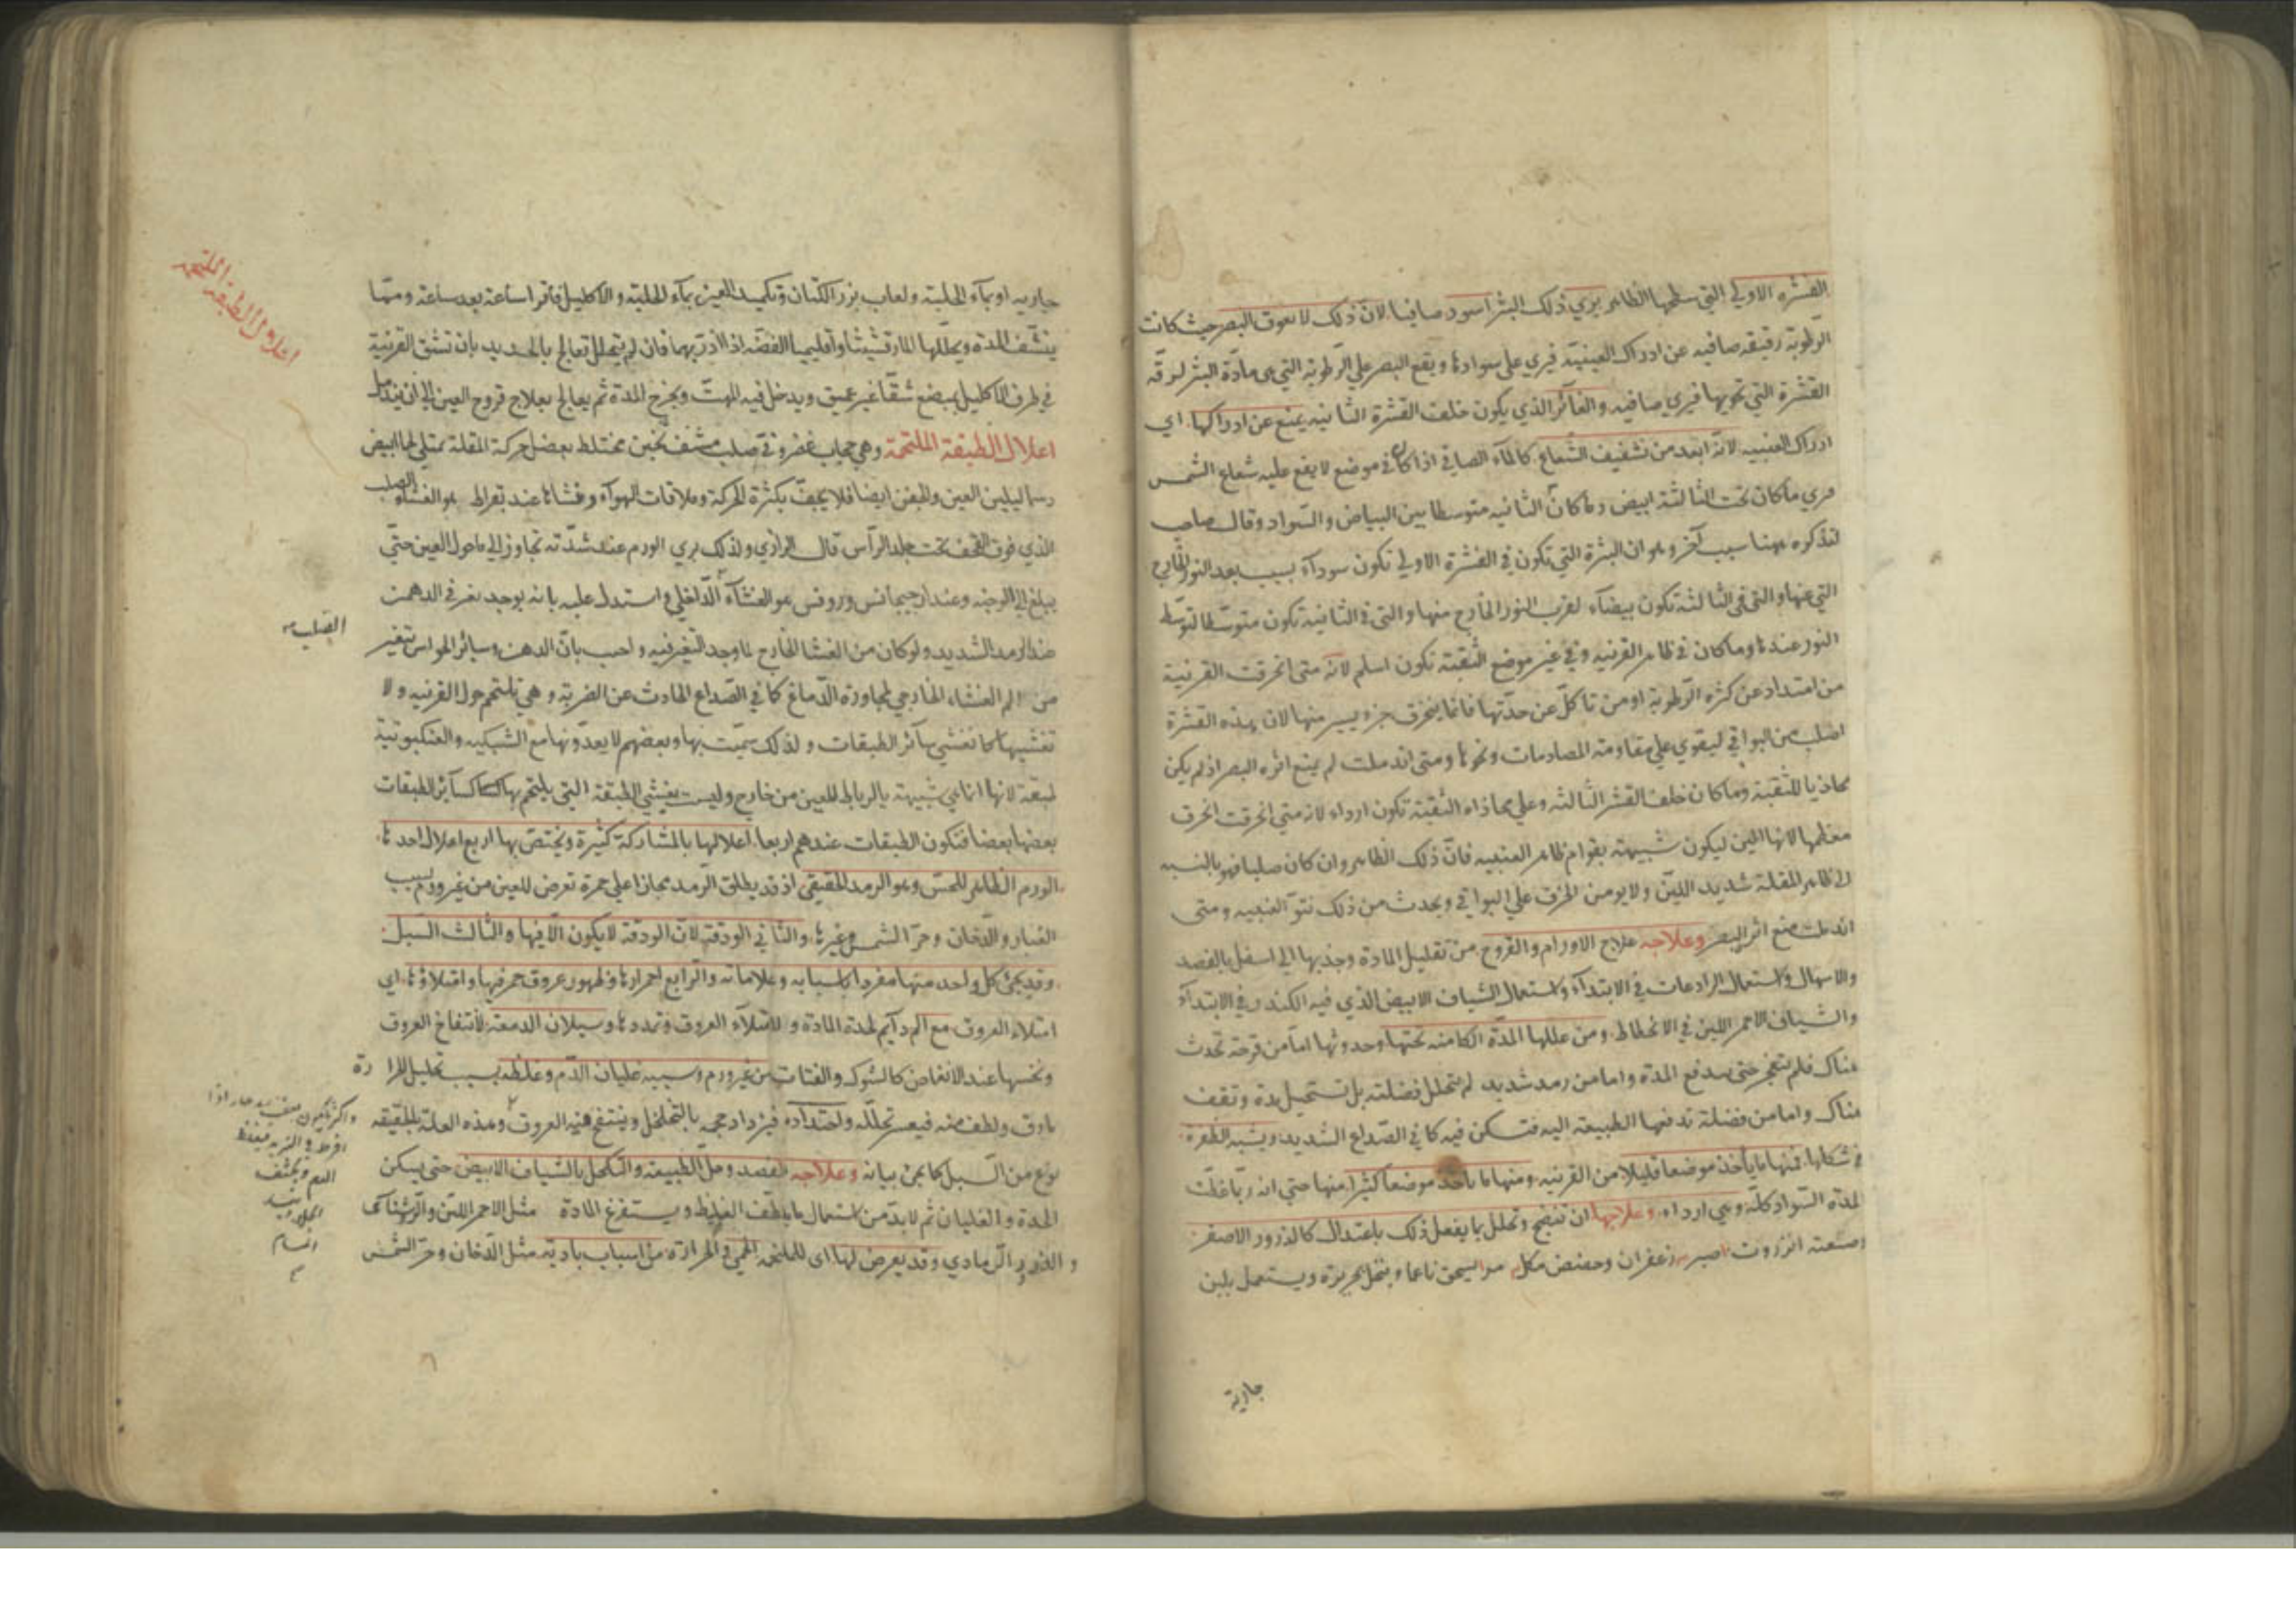 القشره الاولي التي سطحها الظاهر يري ذلك البثر اسود صافيا لان ذلك لا يعوق البصر حيث كانت
الرطوبة رقيقه صافيه عن ادراك العينية فيري علي سوادها ويقع البصر علي الرطوبة التي هي مادة البثر لرقة
القشرة التي تحويها فيري صافيه والغائر الذي يكون خلف القشرة الثانيه يمنع عن ادراكها اي
ادراك العنبيه لانه ابعد من تشفيف الشعاع كالماء الصافي اذا كان في موضع لا يقع عليه شعاع الشمس
فيري ما كان تحت الثالثة ابيض وما كان الثانيه متوسطا بين البياض والسواد وقال صاحب
لتذكره ههنا سبب آخر وهو ان البثرة التي تكون في القشرة الاولي تكون سوداء بسبب بعد النور الخارج
التي عنها والتي في الثالثة تكون بيضاء لقرب النور الخارج منها والتي في الثانية تكون متوسطا لتوسط
النور عندها وما كان في ظاهر القرنيه وفي غير موضع الثقبة تكون اسلم لانه متي انخرقت القرنية
من امتداد عن كثره الرطوبة او من تاكل عن حدتها فانما ينخرق جزو يسير منها لان هذه القشرة
اصلب من البواقي ليقوي علي مقاومة المصادمات ونحوها ومتي اندملت لم يمنع اثره البصر اذ لم يكن
محاذيا للثقبة وما كان خلف القشر الثالثه وعلي محاذاه الثقبة تكون ارداء لانه متي انخرقت انخرق
معظمها لانها الين ليكون شبيهة بقوام ظاهر العنبيه فان ذلك الظاهر وان كان صلبا فهو بالنسبه
الي ظاهر المقلة شديد اللين ولا يومن الخرق علي البواقي ويحدث من ذلك نتو العنبيه ومتي
اندملت منع اثر البصر وعلاجه علاج الاورام والقروح من تقليل المادة وجذبها الي اسفل بالفصد
والاسهال واستعمال الرادعات في الابتداء واستعمال الشياف الابيض الذي فيه الكندر في الابتداء
والشياف الاحمر اللين في الانحطاط ومن عللها المدة الكامنه تحتها وحدوثها اما من قرحة تحدث
هناك فلم تنفجر حتي يدفع المدة واما من رمد شديد لم يتحلل فضلته بل تستحيل مدة وتقف
هناك واما من فضلة تدفعها الطبيعة اليه فتسكن فيه كما في الصداع الشديد ويشبه الظفرة
في شكلها فمنها ما ياخذ موضعا قليلا من القرنيه ومنها ما ياخذ موضعا كثيرا منها حتي انه ربما غطت
لمدة السواد كله وهي ارداء وعلاجها ان تنضج وتحلل بما يفعل ذلك باعتدال كالذرور الاصفر
وصنعته انزروت صبر زعفران وحضض مكل يسحق ناعما وينخل بحريرة ويستعمل بلبن
جارية
جاريه او بماء الحلبة ولعاب بزر الكتان وتكميد العين بماء الحلبة والاكليل فاترا ساعة بعد ساعة ومما
ينشف المدة ويحللها المارقشيثا واقليميا الفضه اذا اذرّ بهما فان لم يتحلل تعالج بالحديد بان تشق القرنية
في طرف الاكليل بمبضع شقا غير عميق ويدخل فيه المهت ويخرج المدة ثم يعالج بعلاج قروح العين الي ان يندمل
اعلال الطبقة الملتحمة وهي حجاب غضروفي صلب مشف ثخين مختلط بعضل حركة المقلة ممتلي لحما ابيض
دسما ليلين العين والجفن ايضا فلا يجف بكثرة الحركة وملاقات الهواء ومنشاها عند بقراط هو الغشاء الصلب
الذي فوق القحف تحت جلد الراس قال الرازي ولذلك يري الورم عند شدته تجاوز الي ما حول العين حتي
يبلغ الي الوجنه وعند ارجيجانس وروفس هو الغشاء الداخلي واستدل عليه بانه يوجد تغير في الذهن
عند الرمد الشديد ولو كان من الغشا الخارج لما وجد التغير فيه واجيب بان الذهن وسائر الحواس تتغير
من الم الغشاء الخارجي لمجاورة الدماغ كما في الصداع الحادث عن الضربة وهي تلتحم حول القرنيه ولا
تغشيها كما تغشي سائر الطبقات ولذلك سميت بها وبعضهم لا يعدونها مع الشبكيه والعنكبوتية
طبقة لانها انما هي شبيهة بالرباط للعين من خارج وليست يغشي الطبقة التي يلتحم بها كسائر الطبقات
بعضها بعضا فتكون الطبقات عندهم اربعا اعلالها بالمشاركة كثيرة ويختص بها اربع اعلال احدها
الورم الظاهر للحس وهو الرمد الحقيقي اذ قد يطلق الرمد مجازا علي حمرة تعرض للعين من غير ورم بسبب
الغبار والدخان وحر الشمس وغيرها والثاني الودقة لان الودقة لا يكون الا فيها والثالث السبل
وقد يجئ كل واحد منها مفردا باسبابه وعلاماته والرابع احمرارها وظهور عروق حمر فيها وامتلاؤها اي
امتلاء العروق مع الم دائم لحدة المادة وامتلاء العروق وتمددها وسيلان الدمعة لانتفاخ العروق
ونخسها عند الانغماض كالشوك والفتات من غير ورم وسببه غليان الدم وغلظه بسبب تحليل الحرارة
مارق ولطف منه فيعسر تحلله واحتداده فيزداد حجمه بالتخلخل وينتفخ هذه العروق وهذه العلة بالحقيقه
نوع من السبل كما يجئ بيانه وعلاجه الفصد وحل الطبيعة والتكحل بالشياف الابيض حتي يسكن
الحدة والغليان ثم لا بد من استعمال ما يلطف الغليظ ويستفرغ المادة مثل الاحمر اللين والروشنايا
والذرور الرمادي وقد يعرض لها اي للملتحمه الحمي والحرارة من اسباب بادية مثل الدخان وحر الشمس
اعلال الطبقة الملتحمة
الصلب